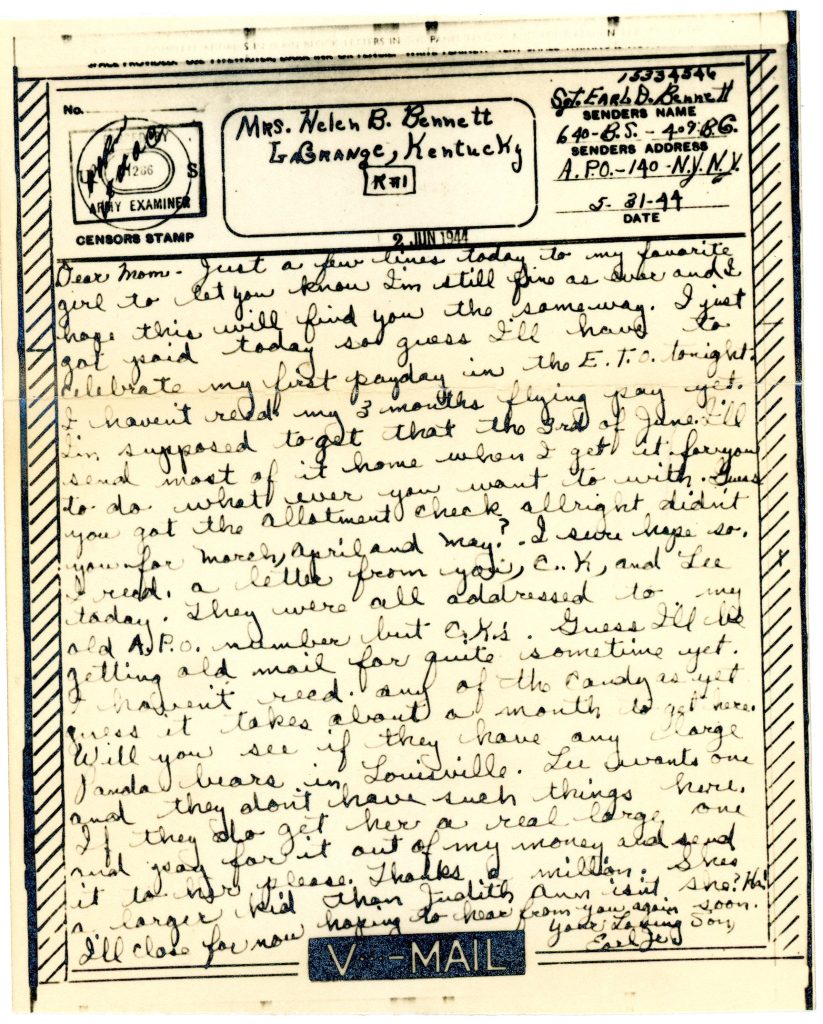 No.
ARMY EXAMINER
1286
S
CENSORS STAMP
Mrs. Helen B. Bennett
LaGrange, Kentucky
R#1
15334546
Sgt. Earl D. Bennett
SENDERS NAME
640-B.S. - 409 B.G.
SENDERS ADDRESS
A.P.O.-140-N.Y. N.Y.
5-31-44
DATE
2 JUN 1944
Dear Mom - Just a few lines today to my favorite
girl to let you know I'm still fine as ever and I
hope this will find you the sameway. I just
got paid today so guess I'll have to
celebrate my first payday in the E.T.O. tonight.
I haven't recd. my 3 months flying pay yet.
I'm supposed to get that the 3rd of June. I'll
send most of it home when I get it for you
to do what ever you want to with. Guess
you got the allotment check allright didn't
you for March, April and May? I sure hope so.
I recd. a letter from you, C.K, and Lee
today. They were all addressed to my
old A.P.O. number but C.K's. Guess I'll be
getting old mail for quite sometime yet.
I haven't recd. any of the candy as yet
guess it takes about a month to get here.
Will you see if they have any large
Panda bears in Louisville. Lee wants one
and they don't have such things here.
If they do get her a real large one
and pay for it out of my money and send
it to her please. Thanks a million. Shes
a larger kid than Judith Ann isn't she? Ha!
I'll close for now hoping to hear from you again soon.
Your Loving Son,
Earl Jr.
V···-MAIL